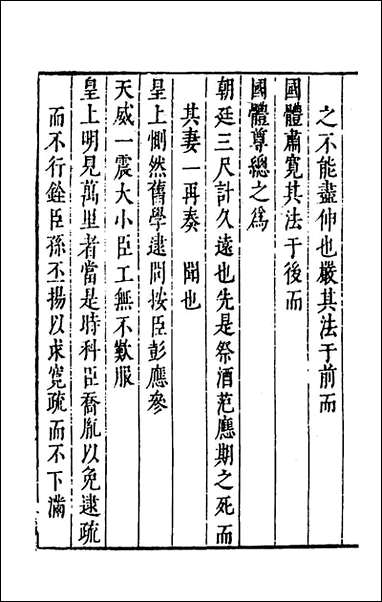 之不能盡伸也嚴其法于前而
國體肅寬其法于後而
國體尊總之爲
朝廷三尺計久遠也先是祭酒范應期之死而
其妻一再奏　聞也
皇上惻然舊學逮問按臣彭應參
天威一震大小臣工無不歎服
皇上明見萬里者當是時科臣喬胤以免逮疏
而不行銓臣孫丕揚以求寬疏而不下滿